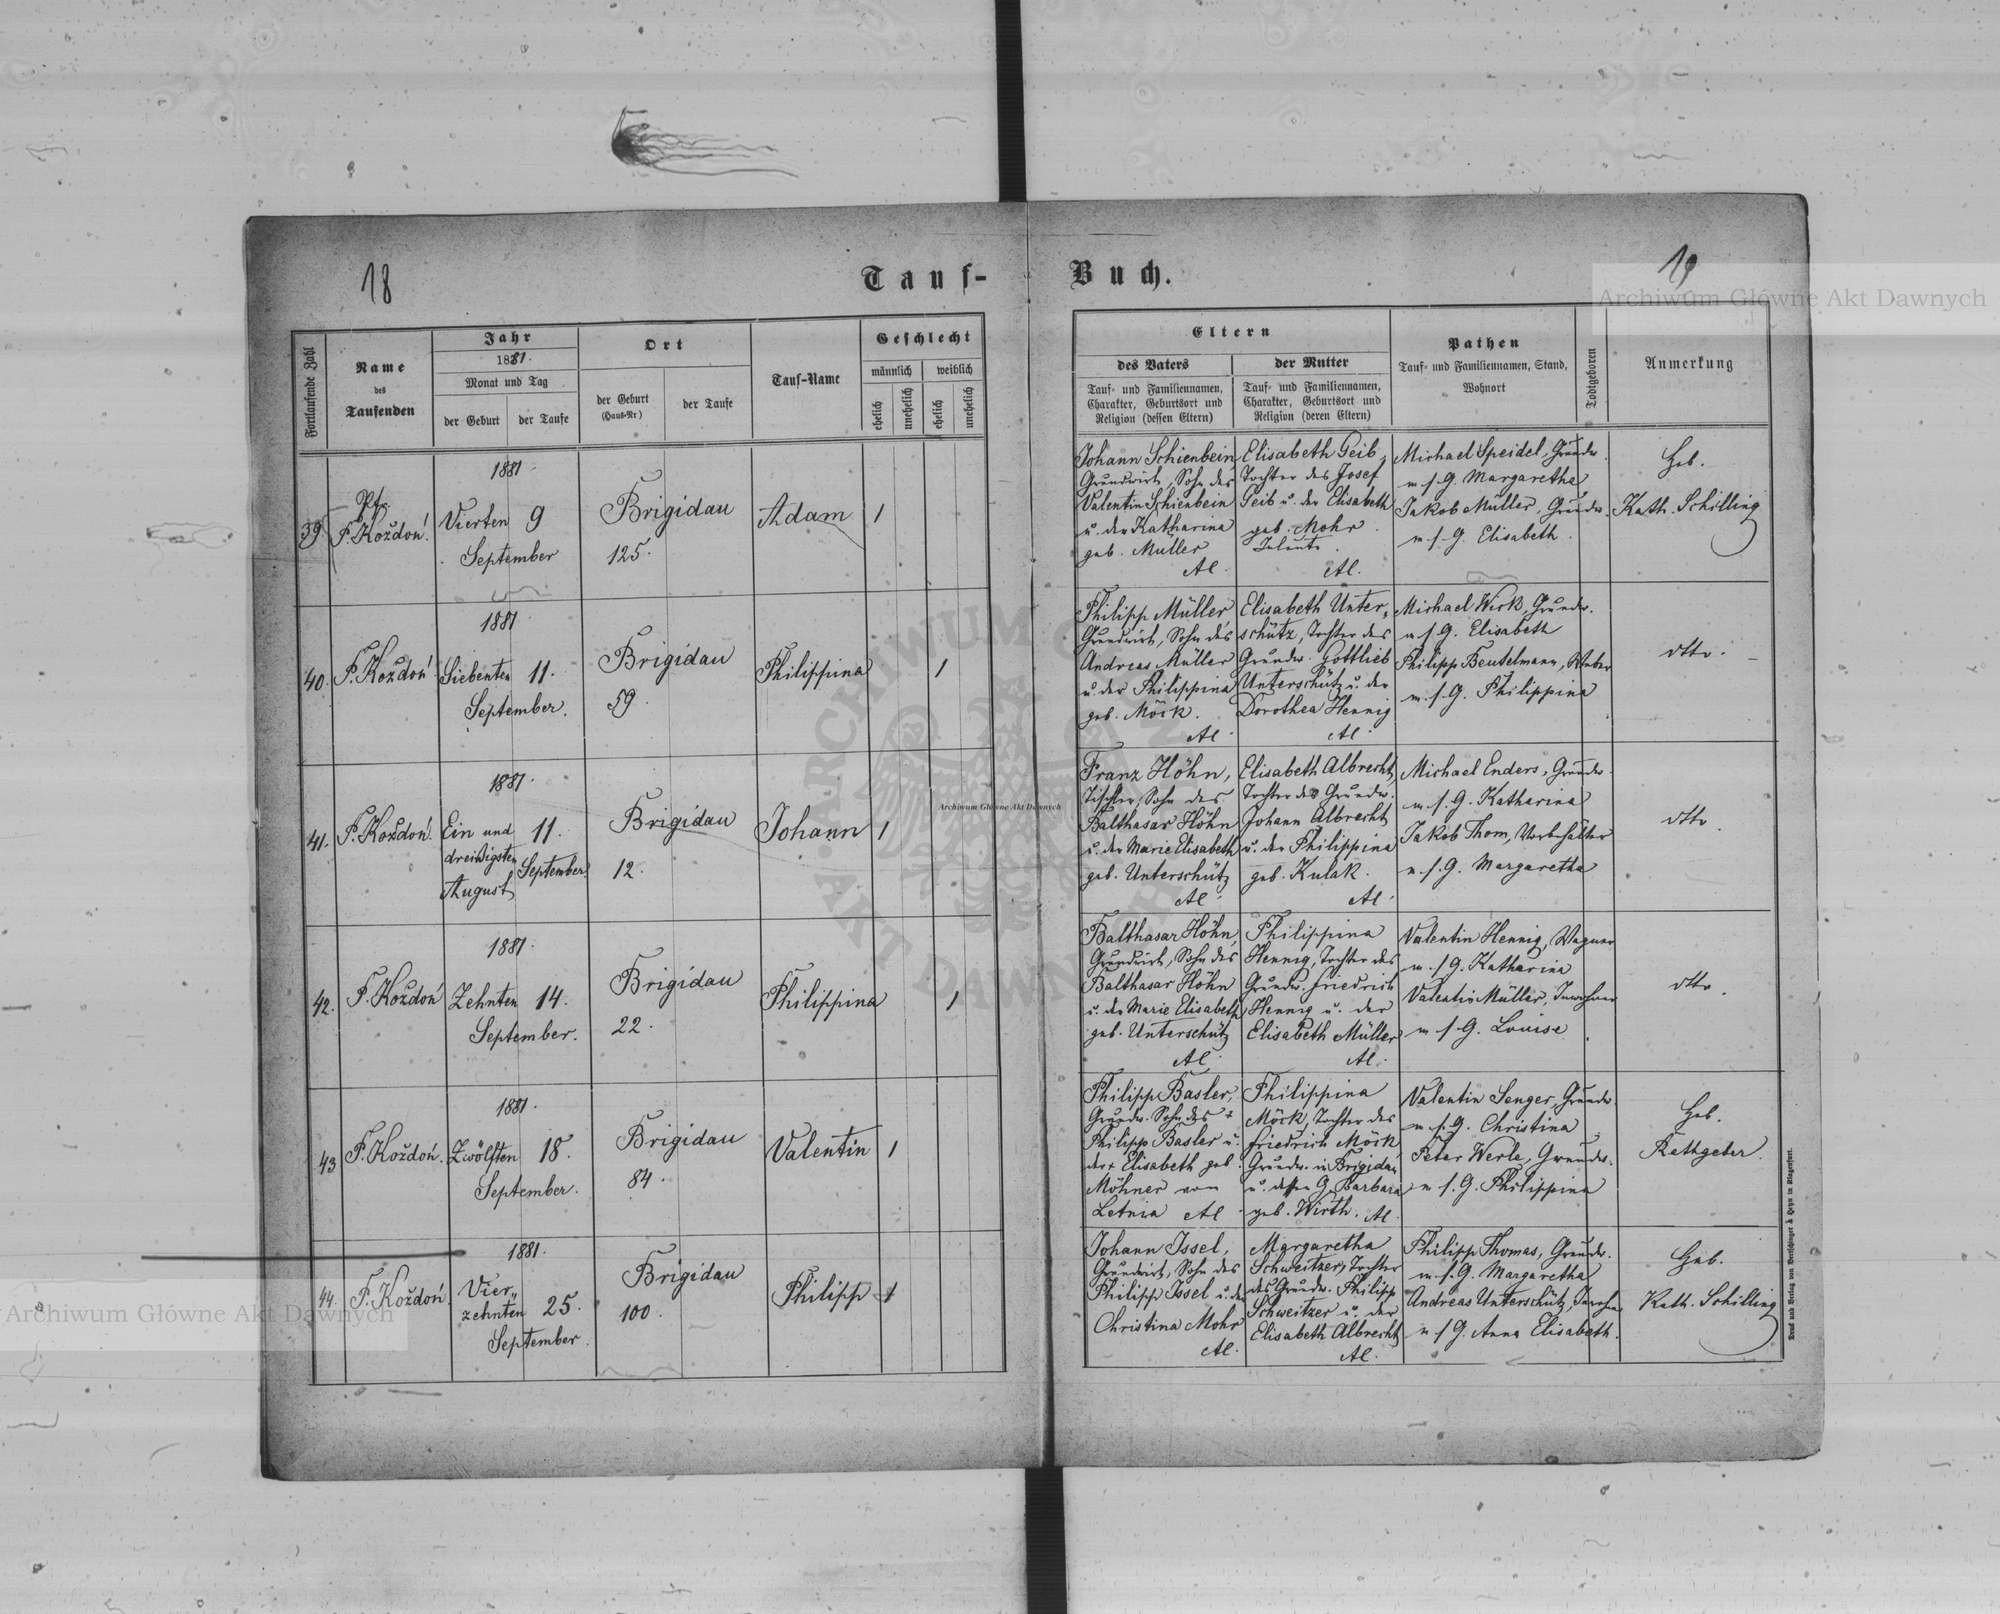 18
Tauf-
Fortlaufende Zahl
Name
des
Taufenden
Jahr
1881.
Monat und Tag
der Geburt
der Taufe
Ort
der Geburt
(Haus-Nr)
der Taufe
Tauf-Name
Geschlecht
männlich
weiblich
ehelich
unehelich
ehelich
unehelich
39.
Pfr.
F. Koždoń.
1881.
Vierten 9
September
Brigidau
125.
Adam
1
40.
F. Koždoń
1881
Siebenten 11.
September.
Brigidau
59.
Philippina
1
41.
F. Koždoń.
1881.
Ein und 11.
dreißigsten September.
August
Brigidau
12.
Johann
1
42.
F. Koždoń
1881.
Zehnten 14.
September.
Brigidau
22.
Philippina
1
43
F. Koždoń.
1881.
Zwölften 18.
September.
Brigidau
84.
Valentin
1
44.
F. Koždoń.
1881.
Vier„
zehnten 25.
September.
Brigidau
100.
Philipp
1
Buch.
19
Eltern
des Vaters
Tauf- und Familiennamen,
Charakter, Geburtsort und
Religion (dessen Eltern)
der Mutter
Tauf- und Familiennamen,
Charakter, Geburtsort und
Religion (deren Eltern)
Pathen
Tauf- und Familiennamen, Stand,
Wohnort
Todtgeboren
Anmerkung
Johann Schienbein
Grundwirt, Sohn des
Valentin Schienbein
u. der Katharina
geb. Müller
AC.
Elisabeth Geib,
Tochter des Josef
Geib u. der Elisabeth
geb. Mohr.
AC.
Michael Speidel, Grundw.
m. s. G. Margaretha
Jakob Müller, Grundw.
m. s. G. Elisabeth.
Heb.
Kath. Schilling
Philipp Müller
Grundwirt, Sohn des
Andreas Müller
u. der Philippina
geb. Möck.
AC.
Elisabeth Unter„
schütz, Tochter des
Grundw. Gottlieb
Unterschütz u. der
Dorothea Hennig
AC.
Michael Wirk, Grundw.
m. s. G. Elisabeth
Philipp Beutelmann, Weber
m. s. G. Philippina
dtto.
Franz Höhn,
Tischler, Sohn des
Balthasar Höhn
u. der Marie Elisabeth
geb. Unterschütz
AC.
Elisabeth Albrecht,
Tochter des Grundw.
Johann Albrecht
u. der Philippina
geb. Kulak.
AC.
Michael Enders, Grundw.
m. s. G. Katharina
Jakob Thom, Vorbehälter
m. s. G. Margaretha
dtto.
Balthasar Höhn,
Grundwirt, Sohn des
Balthasar Höhn
u. der Marie Elisabeth
geb. Unterschütz
AC.
Philippina
Hennig, Tochter des
Grundw. Friedrich
Hennig u. der
Elisabeth Müller
AC.
Valentin Hennig, Wagner
m. s. G. Katharina
Valentin Müller, Inwohner
m. s. G. Louise
dtto.
Philipp Basler,
Grundw. Sohn des +
Philipp Basler u.
der + Elisabeth geb.
Möhner von
Letnia AC
Philippina
Möck, Tochter des
Friedrich Möck
Grundw. in Brigidau
u. dessen G. Barbara
geb. Wirth. AC.
Valentin Senger, Grundw.
m. s. G. Christina
Peter Werle, Grundw.
m. s. G. Philippina
Heb.
Rathgeber.
Johann Issel,
Grundwirt, Sohn des
Philipp Issel u. der
Christina Mohr
AC.
Margaretha
Schweitzer, Tochter
des Grundw. Philipp
Schweitzer u. der
Elisabeth Albrecht
AC.
Philipp Thomas, Grundw.
m. s. G. Margaretha
Andreas Unterschütz, Inwohn.
m. s. G. Anna Elisabeth.
Heb.
Kath. Schilling
Druck und Verlag von Bertschinger & Heyn in Klagenfurt.
Archiwum Główne Akt Dawnych
Archiwum Główne Akt Dawnych
Archiwum Główne Akt Dawnych